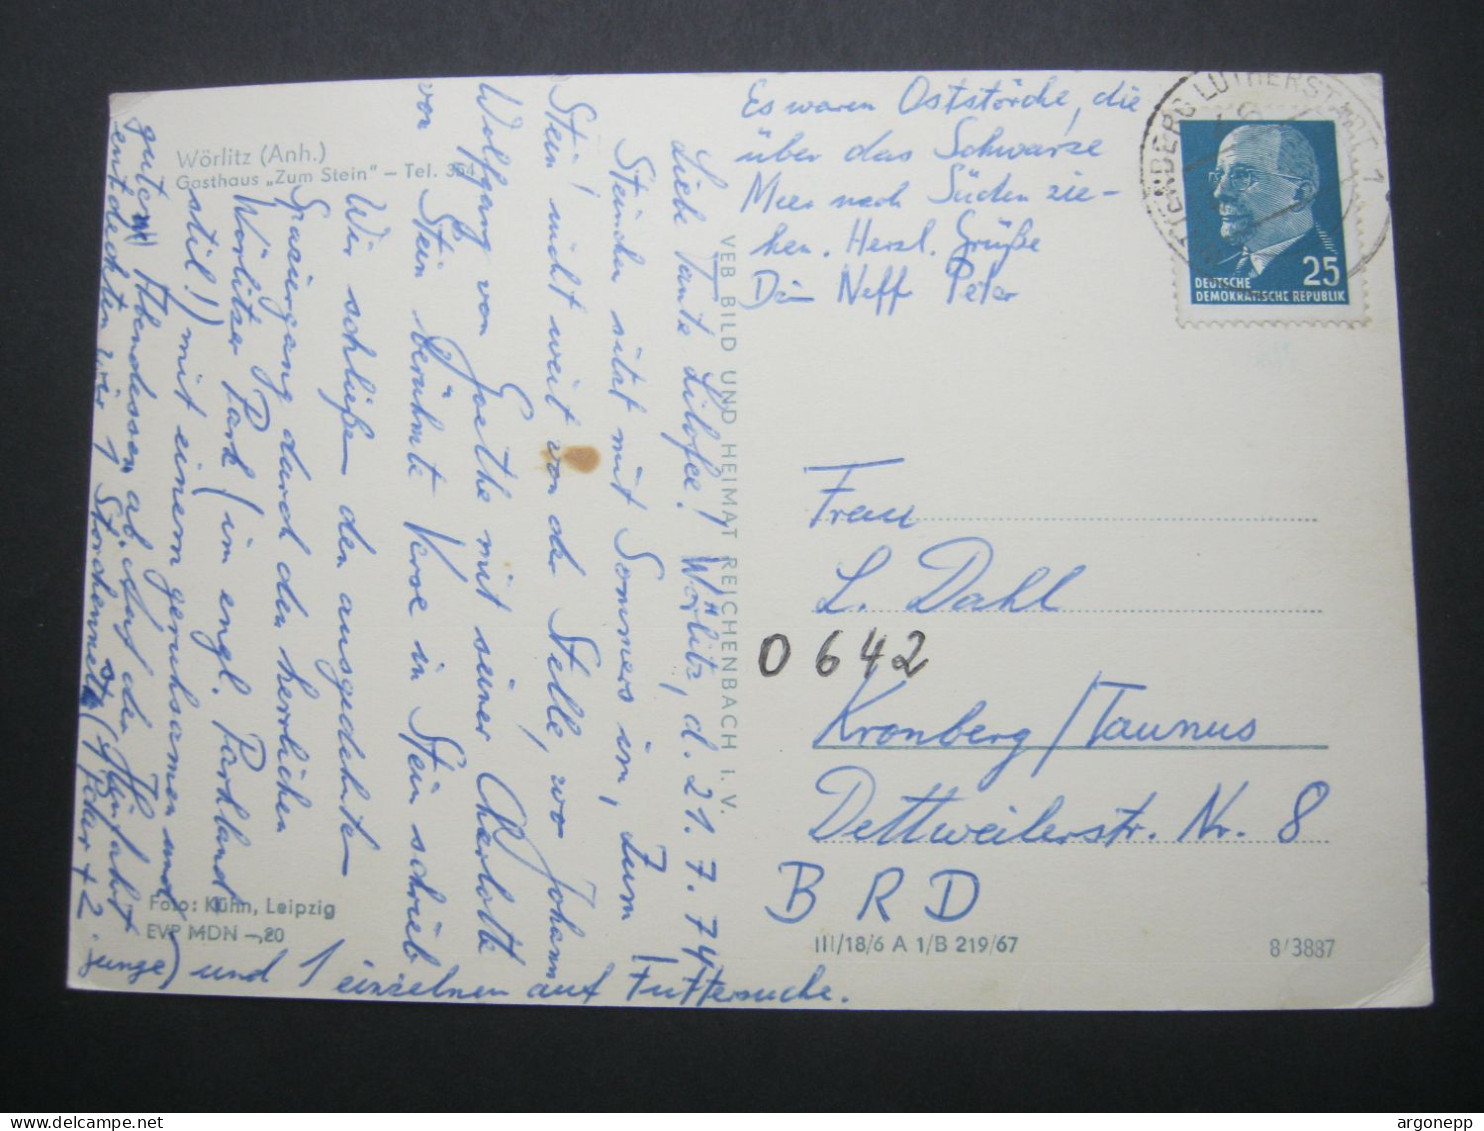 Wörlitz (Anh.)
Gasthaus „Zum Stein" – Tel. 354
Wörlitz, d. 21. 7. 74
Lieb Tante Lilofee!
Steinchen sitzt mit Sommers im, Zum
Stein! nicht weit von der Stelle, wo Johann
Wolfgang von Goethe mit seiner Charlotte
von Stein berühmte Verse in Stein schrieb
Wir schließen den ausgedehnten
Spaziergang durch den herrlichen
Wörlitzer Park (in engl. Parkland
stil!) mit einem geruhsamen und
guten Abendessen ab. Auf der Hinfahrt
entdeckten wir 1 Storchennest (Peter + 2
Junge) und 1 einzelnen auf Futtersuche.
Es waren Oststörche, die
über das Schwarze
Meer nach Süden zie-
hen. Herzl. Grüße
Dein Neff Peter
VEB BILD UND HEIMAT REICHENBACH I. V.
Foto: Kühn, Leipzig
EVP MDN –,20
WITTENBERG LUTHERSTADT 1
25
DEUTSCHE
DEMOKRATISCHE REPUBLIK
Frau
L. Dahl
0642
Kronberg/Taunus
Dettweilerstr. Nr. 8
BRD
III/18/6 A 1/B 219/67
8/3887
argonepp